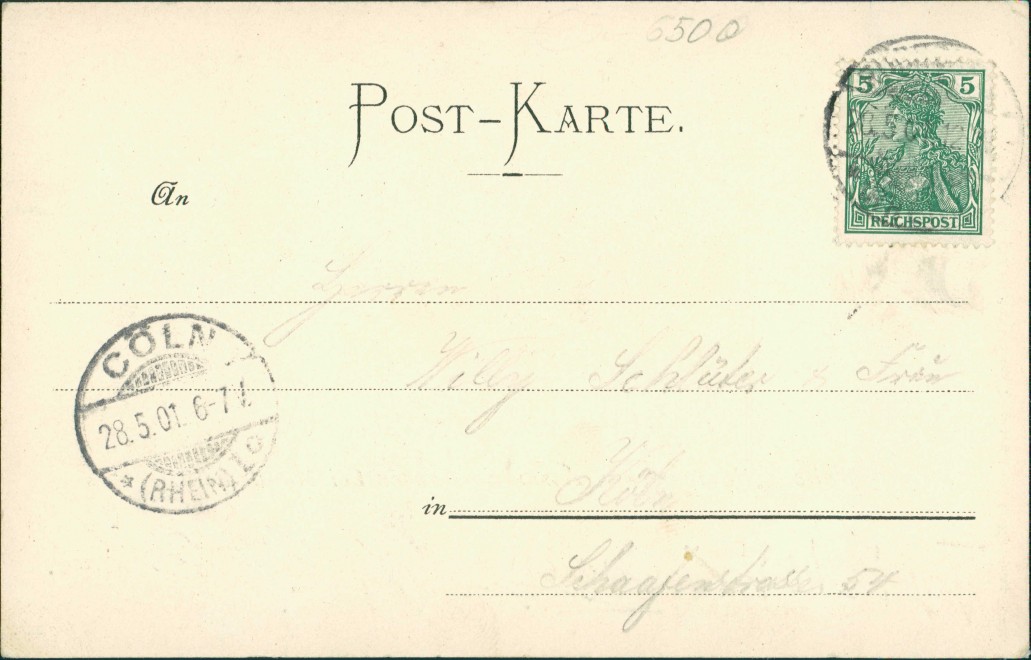 6500
POST-KARTE.
5 5
REICHSPOST
An
Herren
Willy Schlüter & Frau
CÖLN
28.5.01. 6-7 V.
* (RHEIN) 1 c
in Köln
Schaafenstrasse 54